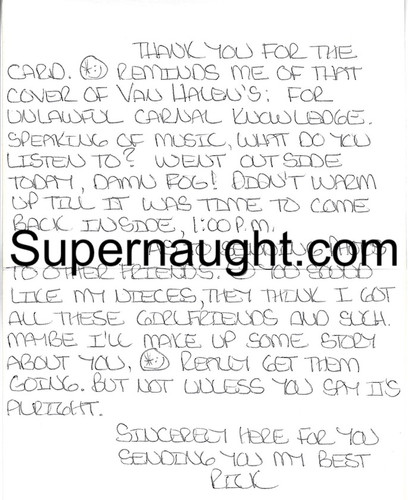 THANK YOU FOR THE
CARD. REMINDS ME OF THAT
COVER OF VAN HALEN'S: FOR
UNLAWFUL CARNAL KNOWLEDGE.
SPEAKING OF MUSIC, WHAT DO YOU
LISTEN TO? WENT OUT SIDE
TODAY, DAMN FOG! DIDN'T WARM
UP TILL IT WAS TIME TO COME
BACK INSIDE, 1:00 P.M.
Supernaught.com
TO OTHER FRIENDS. YOU SOUND
LIKE MY NIECES, THEY THINK I GOT
ALL THESE GIRLFRIENDS AND SUCH.
MAYBE I'LL MAKE UP SOME STORY
ABOUT YOU, REALLY GET THEM
GOING. BUT NOT UNLESS YOU SAY IT'S
ALRIGHT.
SINCERELY HERE FOR YOU
SENDING YOU MY BEST
RICK